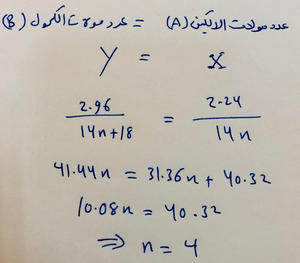 عدد مولات الالكين (A) = عدد مولات الكحول (B)
Y = X
2.96 / 14n+18 = 2.24 / 14n
41.44n = 31.36n + 40.32
10.08n = 40.32
⇒ n = 4